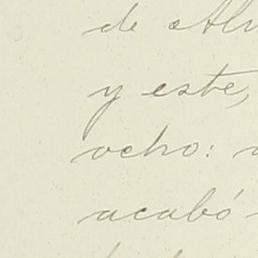 de
y este,
ocho:
acabó